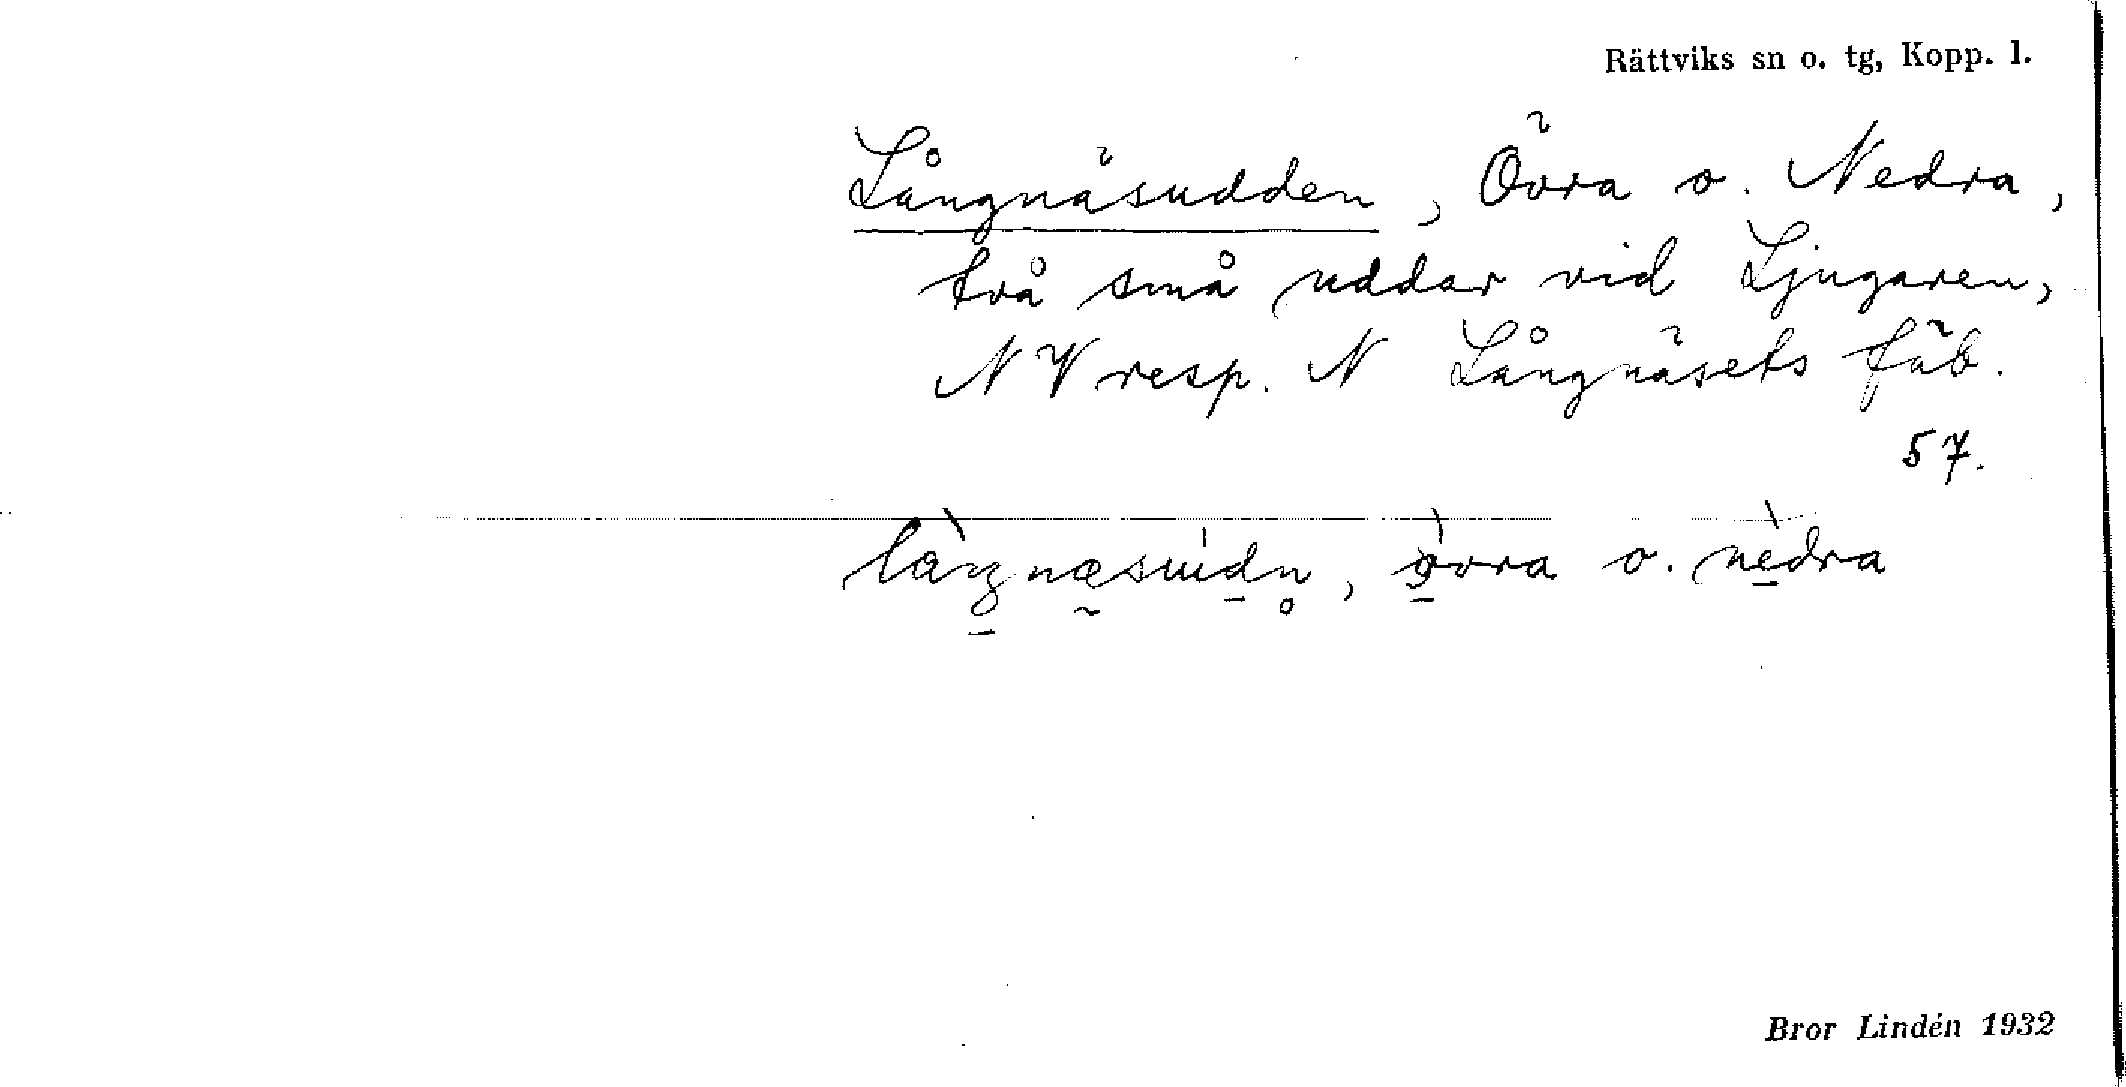 Rättviks sn o. tg, Kopp. l.
Långnäsudden, Övra o. Nedra,
två små uddar vid Ljugaren,
NV resp. N Långnäsets fäb.
57.
o. nèdra
Bror Lindén 1932